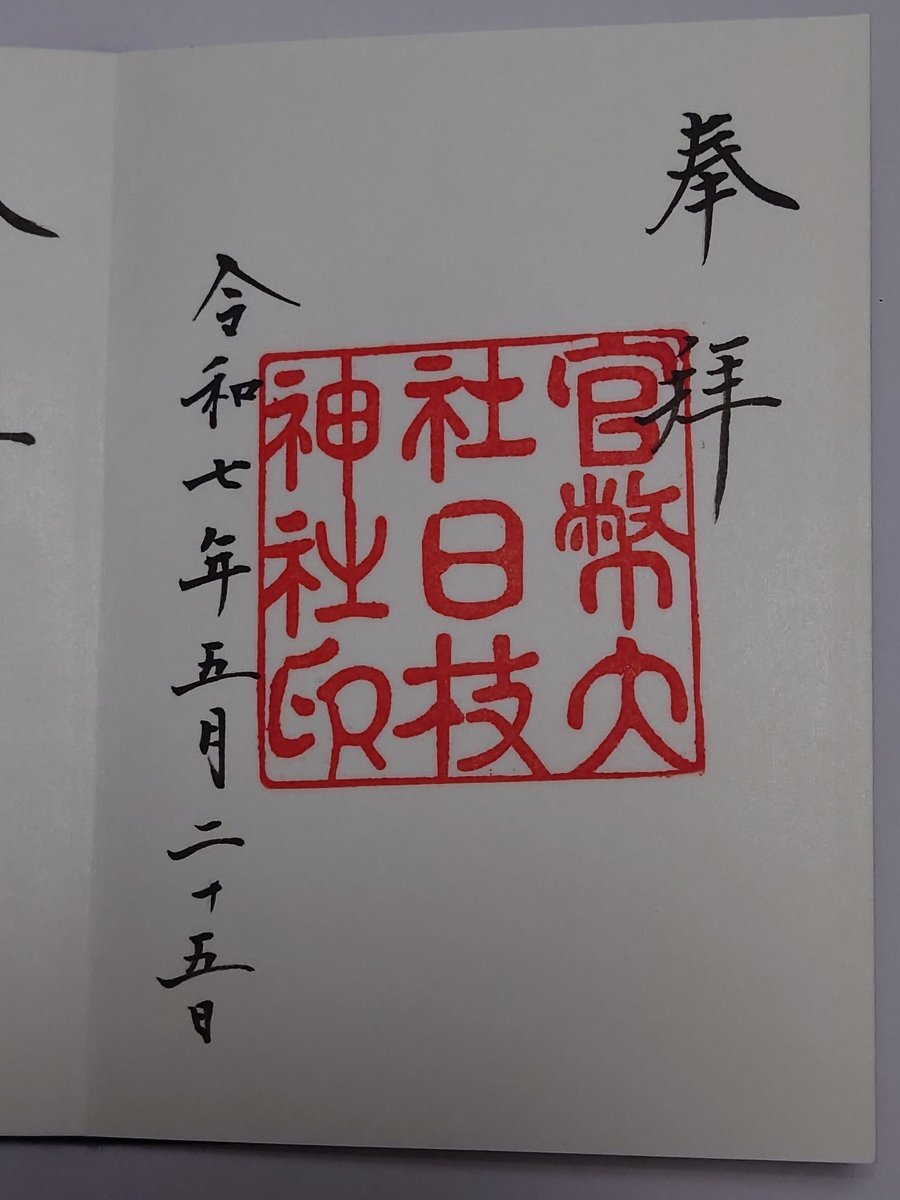 奉拝
官幣大
社日枝
神社印
令和七年五月二十五日